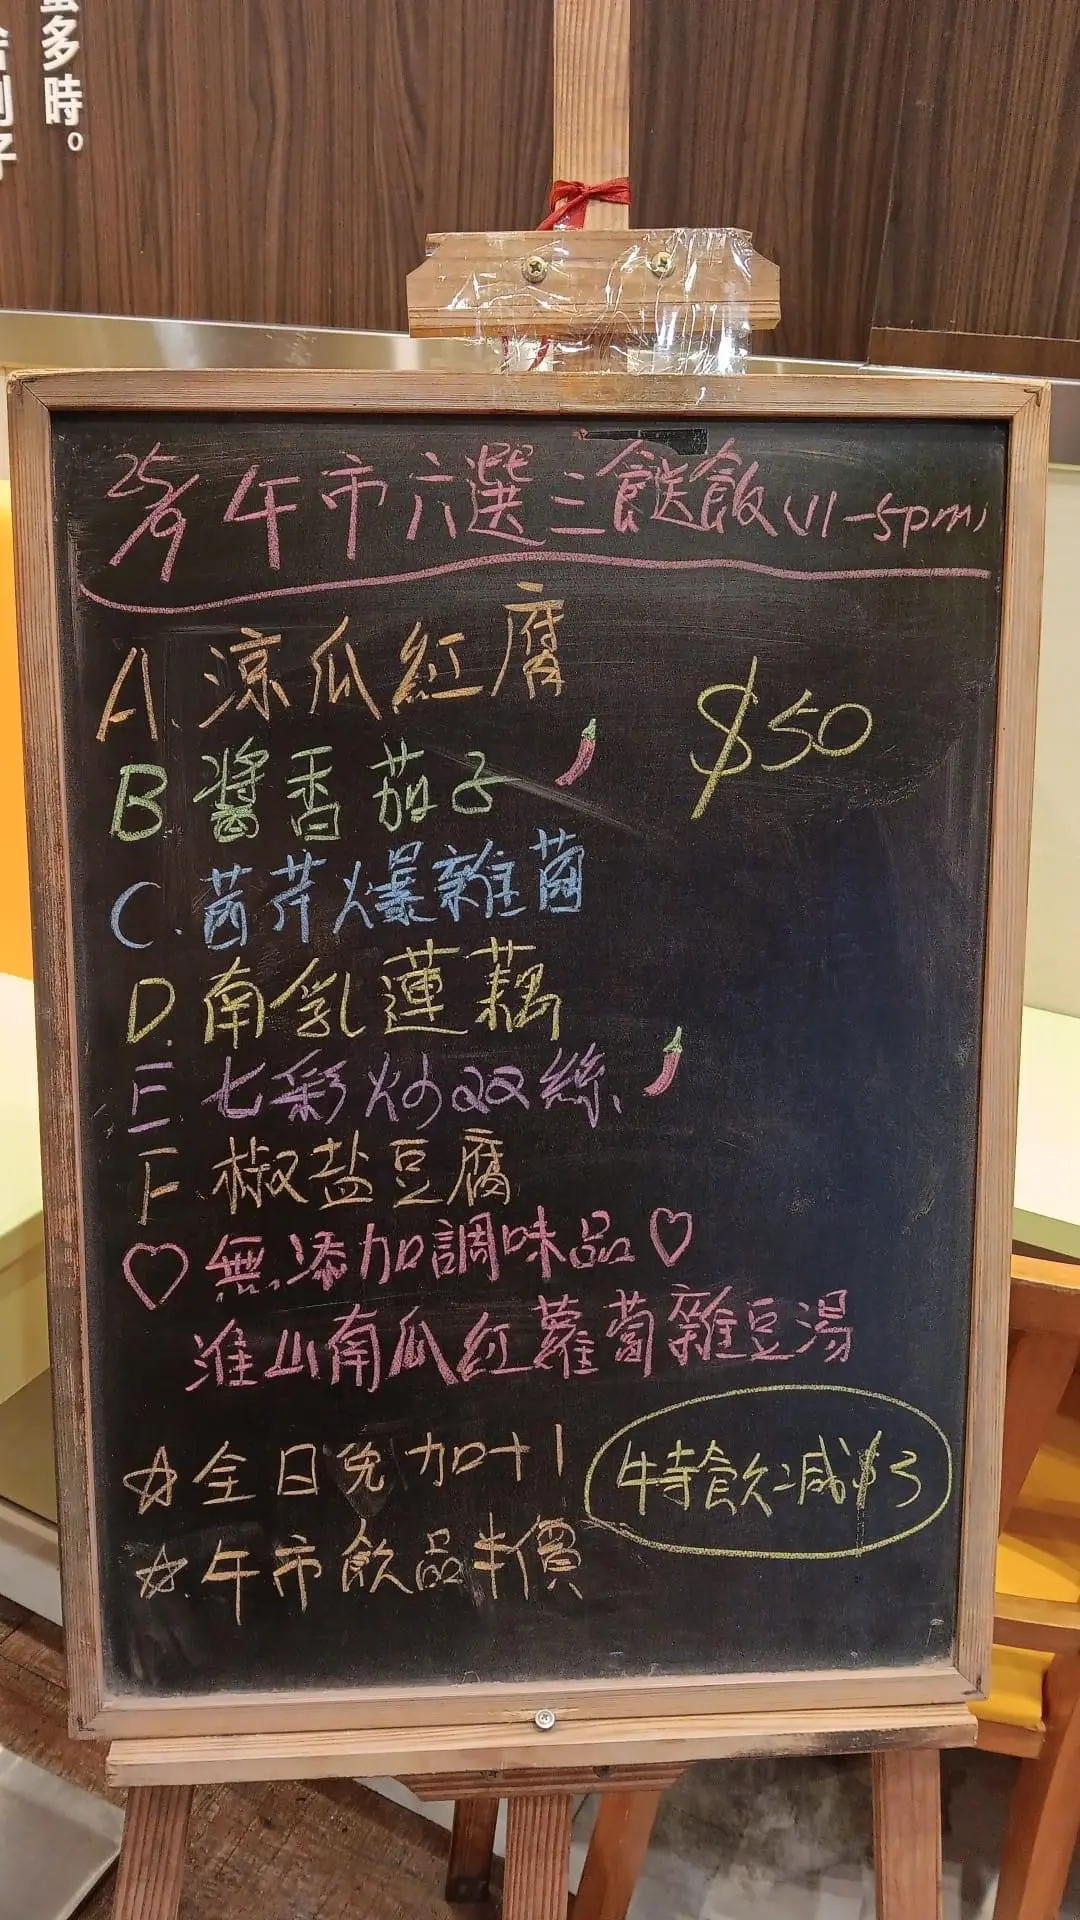 蛋多時。
25/9 午市六選三餸飯(11-5pm)
A. 涼瓜紅腐
$50
B 醬香茄子
C. 茜芹爆雜菌
D. 南乳蓮藕
E. 七彩炒双絲
F. 椒盐豆腐
♡無添加調味品♡
淮山南瓜红蘿蔔雜豆湯
☆全日免加十1
特飲减$3
☆午市飲品半價